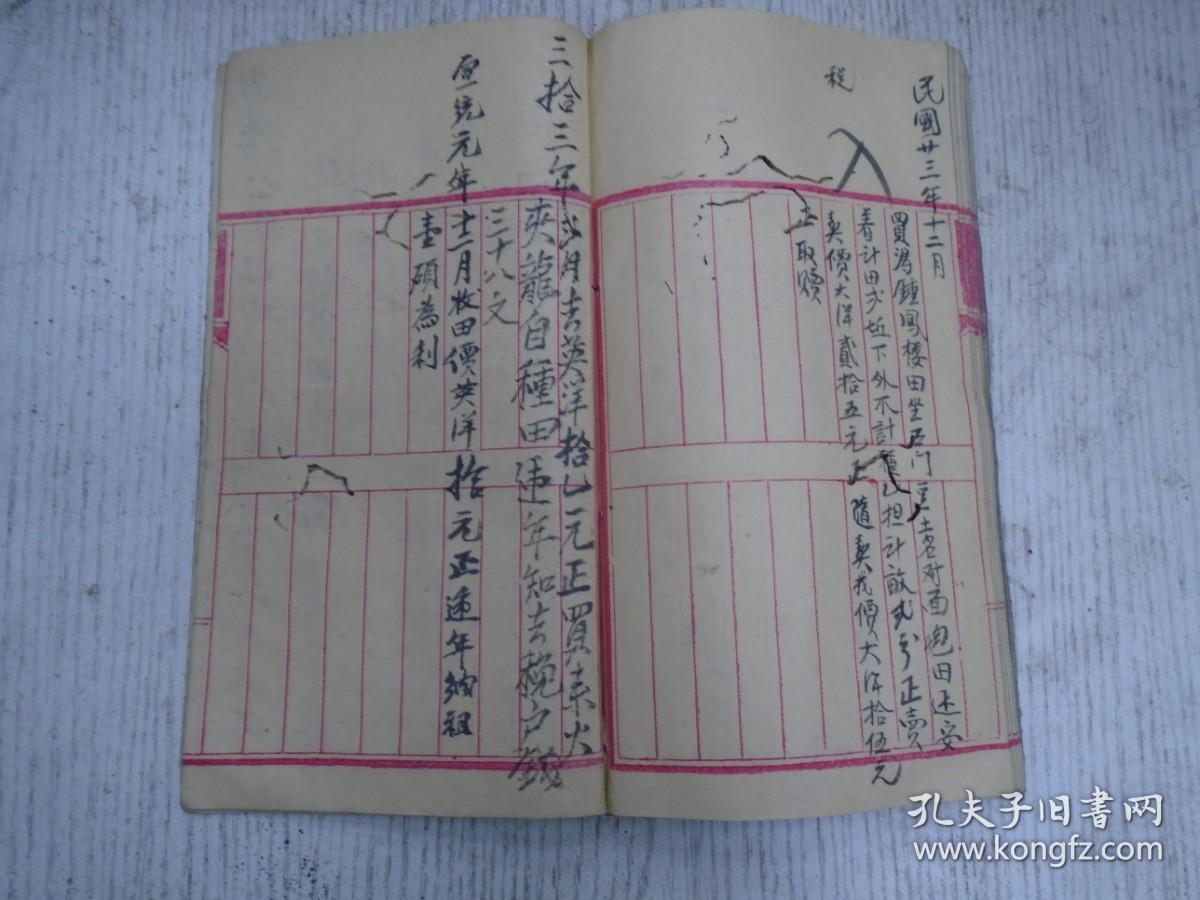 民國廿三年十二月
買馮鍾鳳樓田坐石門里土名对面
着計田弍坵下外不計種乙担計畝弍分正賣
契價大洋貳拾五元正 隨契找價大洋拾伍元
正取贖
税
三拾三年 月去英洋拾乙元正買來火
夾籠自種田 年知去税户錢
三十八文
宣統元年十二月收田價英洋拾元正逐年納租
壹碩為利
孔夫子旧书网
www.kongfz.com